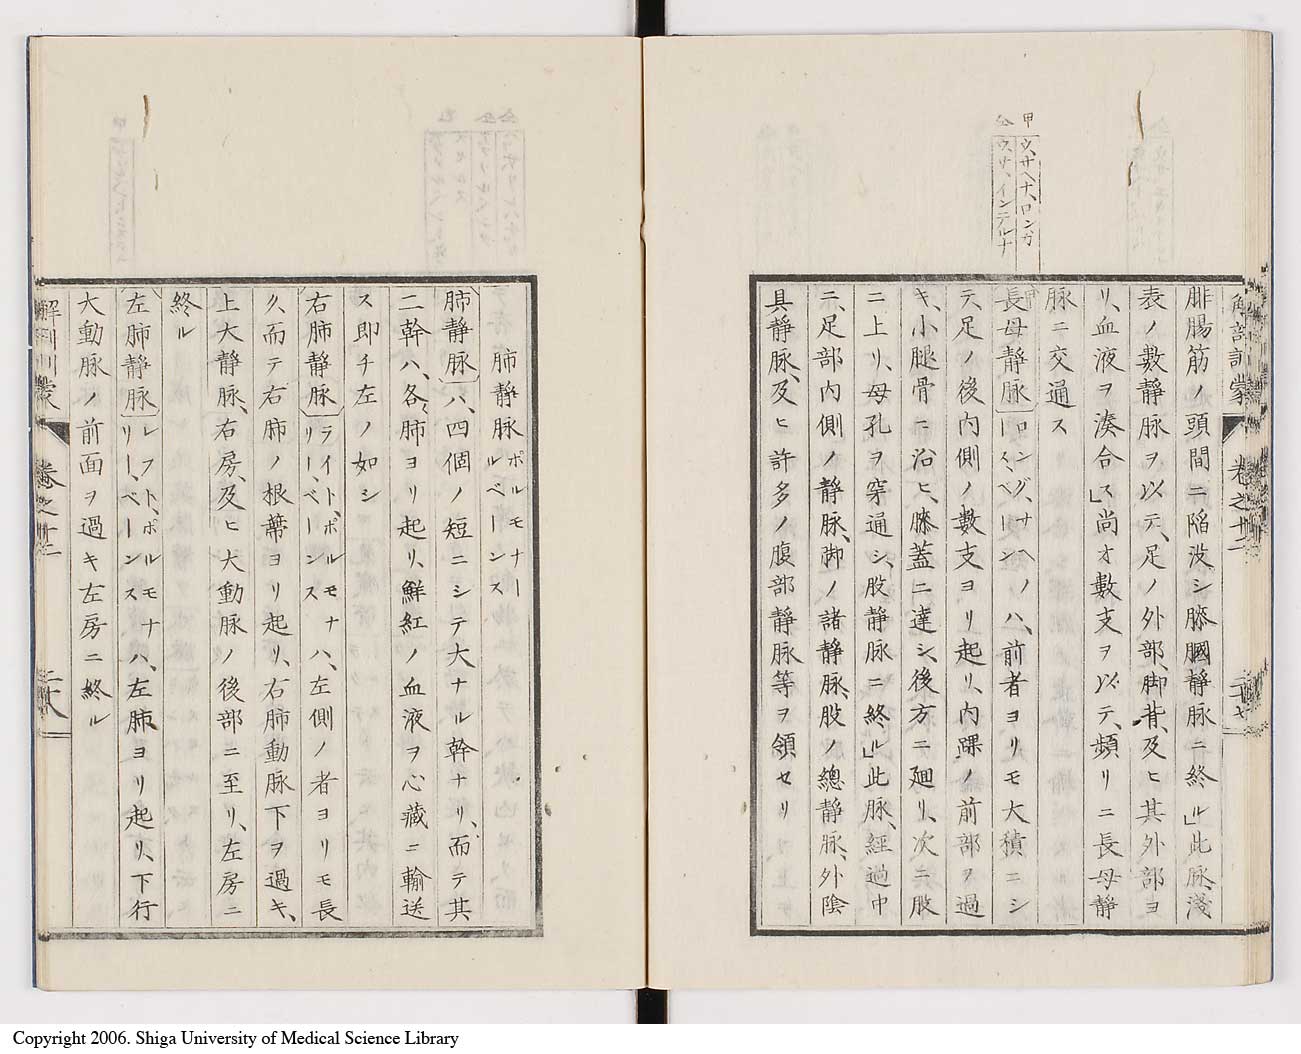 甲 ウ、サヘナ、ロンガ
仝 ウ、サ、インテルナ
解剖訓蒙 卷之十二 二十七
腓腸筋ノ頭間ニ陷沒シ膝膕靜脉ニ終ル」此脉、淺
表ノ數靜脉ヲ以テ、足ノ外部、脚背、及ヒ其外部ヨ
リ、血液ヲ湊合ス」尚オ數支ヲ以テ、頻リニ長母靜
脉ニ交通ス
長母靜脉 ロング、サヘノース、ベーン ハ、前者ヨリモ大積ニシ
テ、足ノ後內側ノ數支ヨリ起リ、內踝ノ前部ヲ過
キ、小腿骨ニ沿ヒ、膝蓋ニ達シ、後方ニ廻リ、次ニ股
ニ上リ、母孔ヲ穿通シ、股靜脉ニ終ル」此脉、經過中
ニ、足部內側ノ靜脉、脚ノ諸靜脉、股ノ總靜脉、外陰
具靜脉、及ヒ許多ノ腹部靜脉等ヲ領セリ
肺靜脉 ポルモナールベーンス
肺靜脉ハ、四個ノ短ニシテ大ナル幹ナリ、而テ其
二幹ハ、各、肺ヨリ起リ、鮮紅ノ血液ヲ心藏ニ輸送
ス即チ左ノ如シ
右肺靜脉 ライト、ポルモナリー、ベーンス ハ、左側ノ者ヨリモ長
ク、而テ右肺ノ根蔕ヨリ起リ、右肺動脉下ヲ過キ、
上大靜脉、右房、及ヒ大動脉ノ後部ニ至リ、左房ニ
終ル
左肺靜脉 レフト、ポルモナリー、ベーンス ハ、左肺ヨリ起リ、下行
大動脉ノ前面ヲ過キ左房ニ終ル
卷之十二
Copyright 2006. Shiga University of Medical Science Library